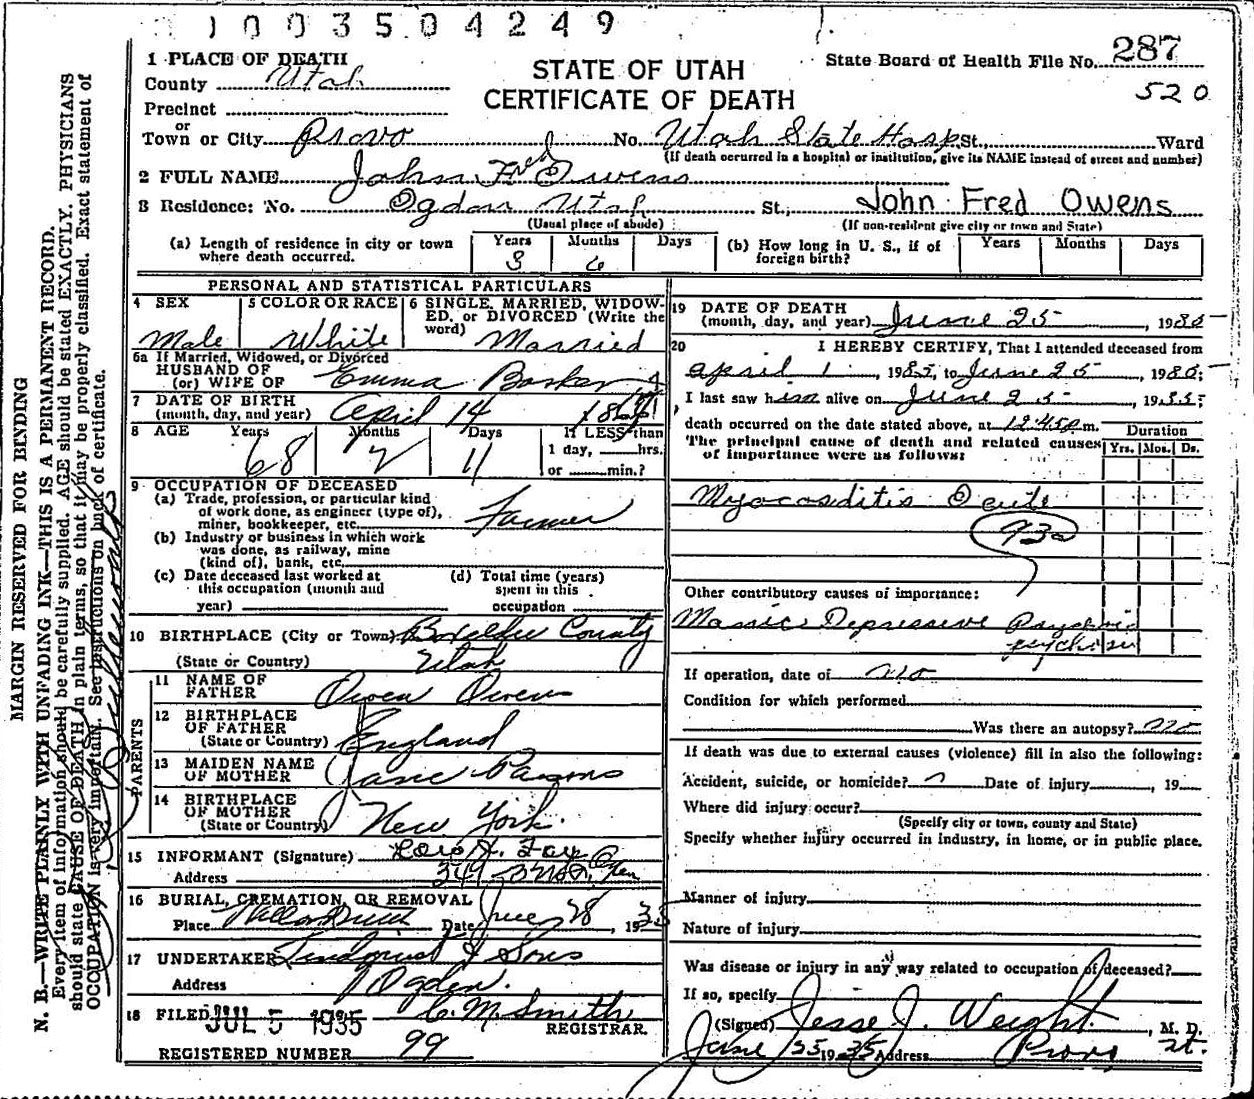 1003504249
1 PLACE OF DEATH
County Utah
Precinct
or
Town or City Provo
STATE OF UTAH
CERTIFICATE OF DEATH
State Board of Health File No. 287
520
No. Utah State Hosp St., Ward
(If death occurred in a hospital or institution, give its NAME instead of street and number)
2 FULL NAME John Fred Owens
3 Residence: No. Ogden Utah St., John Fred Owens
(Usual place of abode) (If non-resident give city or town and State)
(a) Length of residence in city or town where death occurred. Years 3 Months 6 Days
(b) How long in U. S., if of foreign birth? Years Months Days
PERSONAL AND STATISTICAL PARTICULARS
4 SEX Male
5 COLOR OR RACE White
6 SINGLE, MARRIED, WIDOWED, or DIVORCED (Write the word) Married
6a If Married, Widowed, or Divorced
HUSBAND OF
(or) WIFE OF Emma
7 DATE OF BIRTH
(month, day, and year) April 14
8 AGE Years 68 Months 2 Days 11 If LESS than
1 day, hrs.
or min.?
9 OCCUPATION OF DECEASED
(a) Trade, profession, or particular kind
of work done, as engineer (type of),
miner, bookkeeper, etc. Farmer
(b) Industry or business in which work
was done, as railway, mine
(kind of), bank, etc.
(c) Date deceased last worked at
this occupation (month and
year)
(d) Total time (years)
spent in this
occupation
10 BIRTHPLACE (City or Town) Boxelder County
(State or Country) Utah
PARENTS
11 NAME OF
FATHER Owen Owens
12 BIRTHPLACE
OF FATHER
(State or Country) England
13 MAIDEN NAME
OF MOTHER Jane Parsons
14 BIRTHPLACE
OF MOTHER
(State or Country) New York.
15 INFORMANT (Signature)
Address 349
16 BURIAL, CREMATION, OR REMOVAL
Place Date June 28, 1935
17 UNDERTAKER Lindquist & Sons
Address Ogden.
18 FILED JUL 5 1935 C. M. Smith
REGISTRAR
REGISTERED NUMBER 99
19 DATE OF DEATH
(month, day, and year) June 25, 1935
20 I HEREBY CERTIFY, That I attended deceased from
April 1, 1935, to June 25, 1935;
I last saw him alive on June 25, 1935;
death occurred on the date stated above, at 12:45 p m.
The principal cause of death and related causes
of importance were as follows:
Duration
Yrs. Mos. Ds.
Myocarditis Acute
93a
Other contributory causes of importance:
Manic Depressive
psychosis
If operation, date of no
Condition for which performed
Was there an autopsy? no
If death was due to external causes (violence) fill in also the following:
Accident, suicide, or homicide? Date of injury, 19
Where did injury occur?
(Specify city or town, county and State)
Specify whether injury occurred in industry, in home, or in public place.
Manner of injury
Nature of injury
Was disease or injury in any way related to occupation of deceased?
If so, specify
(Signed) Jesse J. Weight, M. D.
June 25 1935 Address Provo
MARGIN RESERVED FOR BINDING
N. B.—WRITE PLANLY WITH UNFADING INK—THIS IS A PERMANENT RECORD.
Every item of information should be carefully supplied. AGE should be stated EXACTLY. PHYSICIANS
should state CAUSE OF DEATH in plain terms, so that it may be properly classified. Exact statement of
OCCUPATION is very important. See instructions on back of certificate.